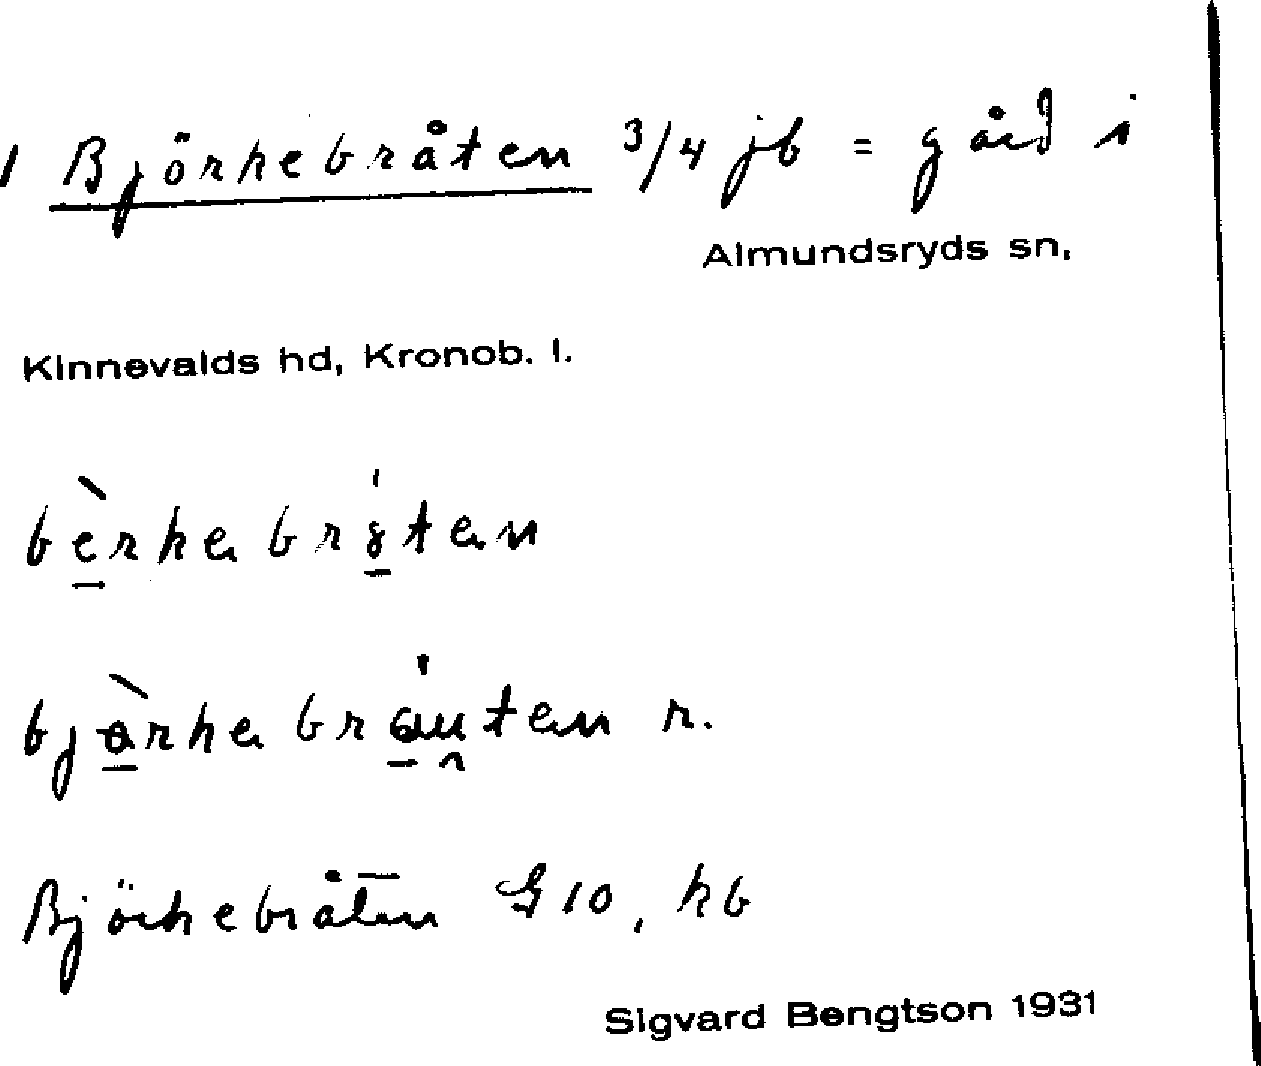 1 Björkebråten 3/4 jb = gård i
Almundsryds sn,
Kinnevalds hd, Kronob. l.
bèrkebr tən
bjàrkebráutən r.
Björkebråten G10, kb
Sigvard Bengtson 1931